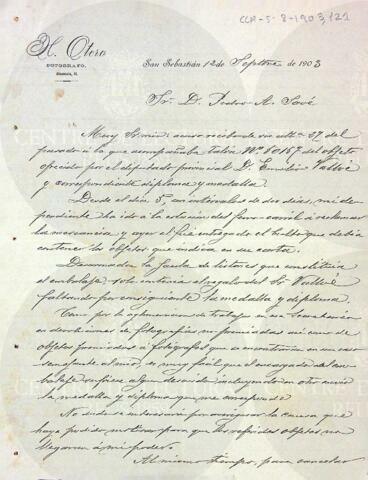 CCA-5-8-1903,121
H. Otero
FOTÓGRAFO.
San Sebastián 12 de Septbre de 1903
Sr. D. Pedro A. Savé
Muy Sr. mio: acuso recibo de su atta 27 del
pasado á la que acompañaba Talón Nº 80157 del objeto
ofrecido por el diputado provincial D. Emilio
y correspondiente diploma y medalla.
Desde el día 3, con intérvalos de dos días, mi de-
pendiente ha ido á la estación del ferro-carril á reclamar
la mercancía y ayer le fué entregado el bulto que debía
contener los objetos que indica en su carta.
Desarmada la jaula de listones que constituía
el embalaje, solo contenía el regalo del Sr.
faltando por consiguiente la medalla y diploma.
Como por la aglomeración de trabajo en esa
en devoluciones de fotografías no premiadas así como de
objetos premiados á fotógrafos que se encontrarán en un caso
semejante al mio, es muy fácil que el encargado del em-
balaje sufriese algun descuido incluyendo en otro envío
la medalla y diploma que me corresponde
No dudo se interesará por averiguar la causa que
haya podido motivar para que los referidos objetos no
llegaran á mi poder.
Al mismo tiempo, para cancelar